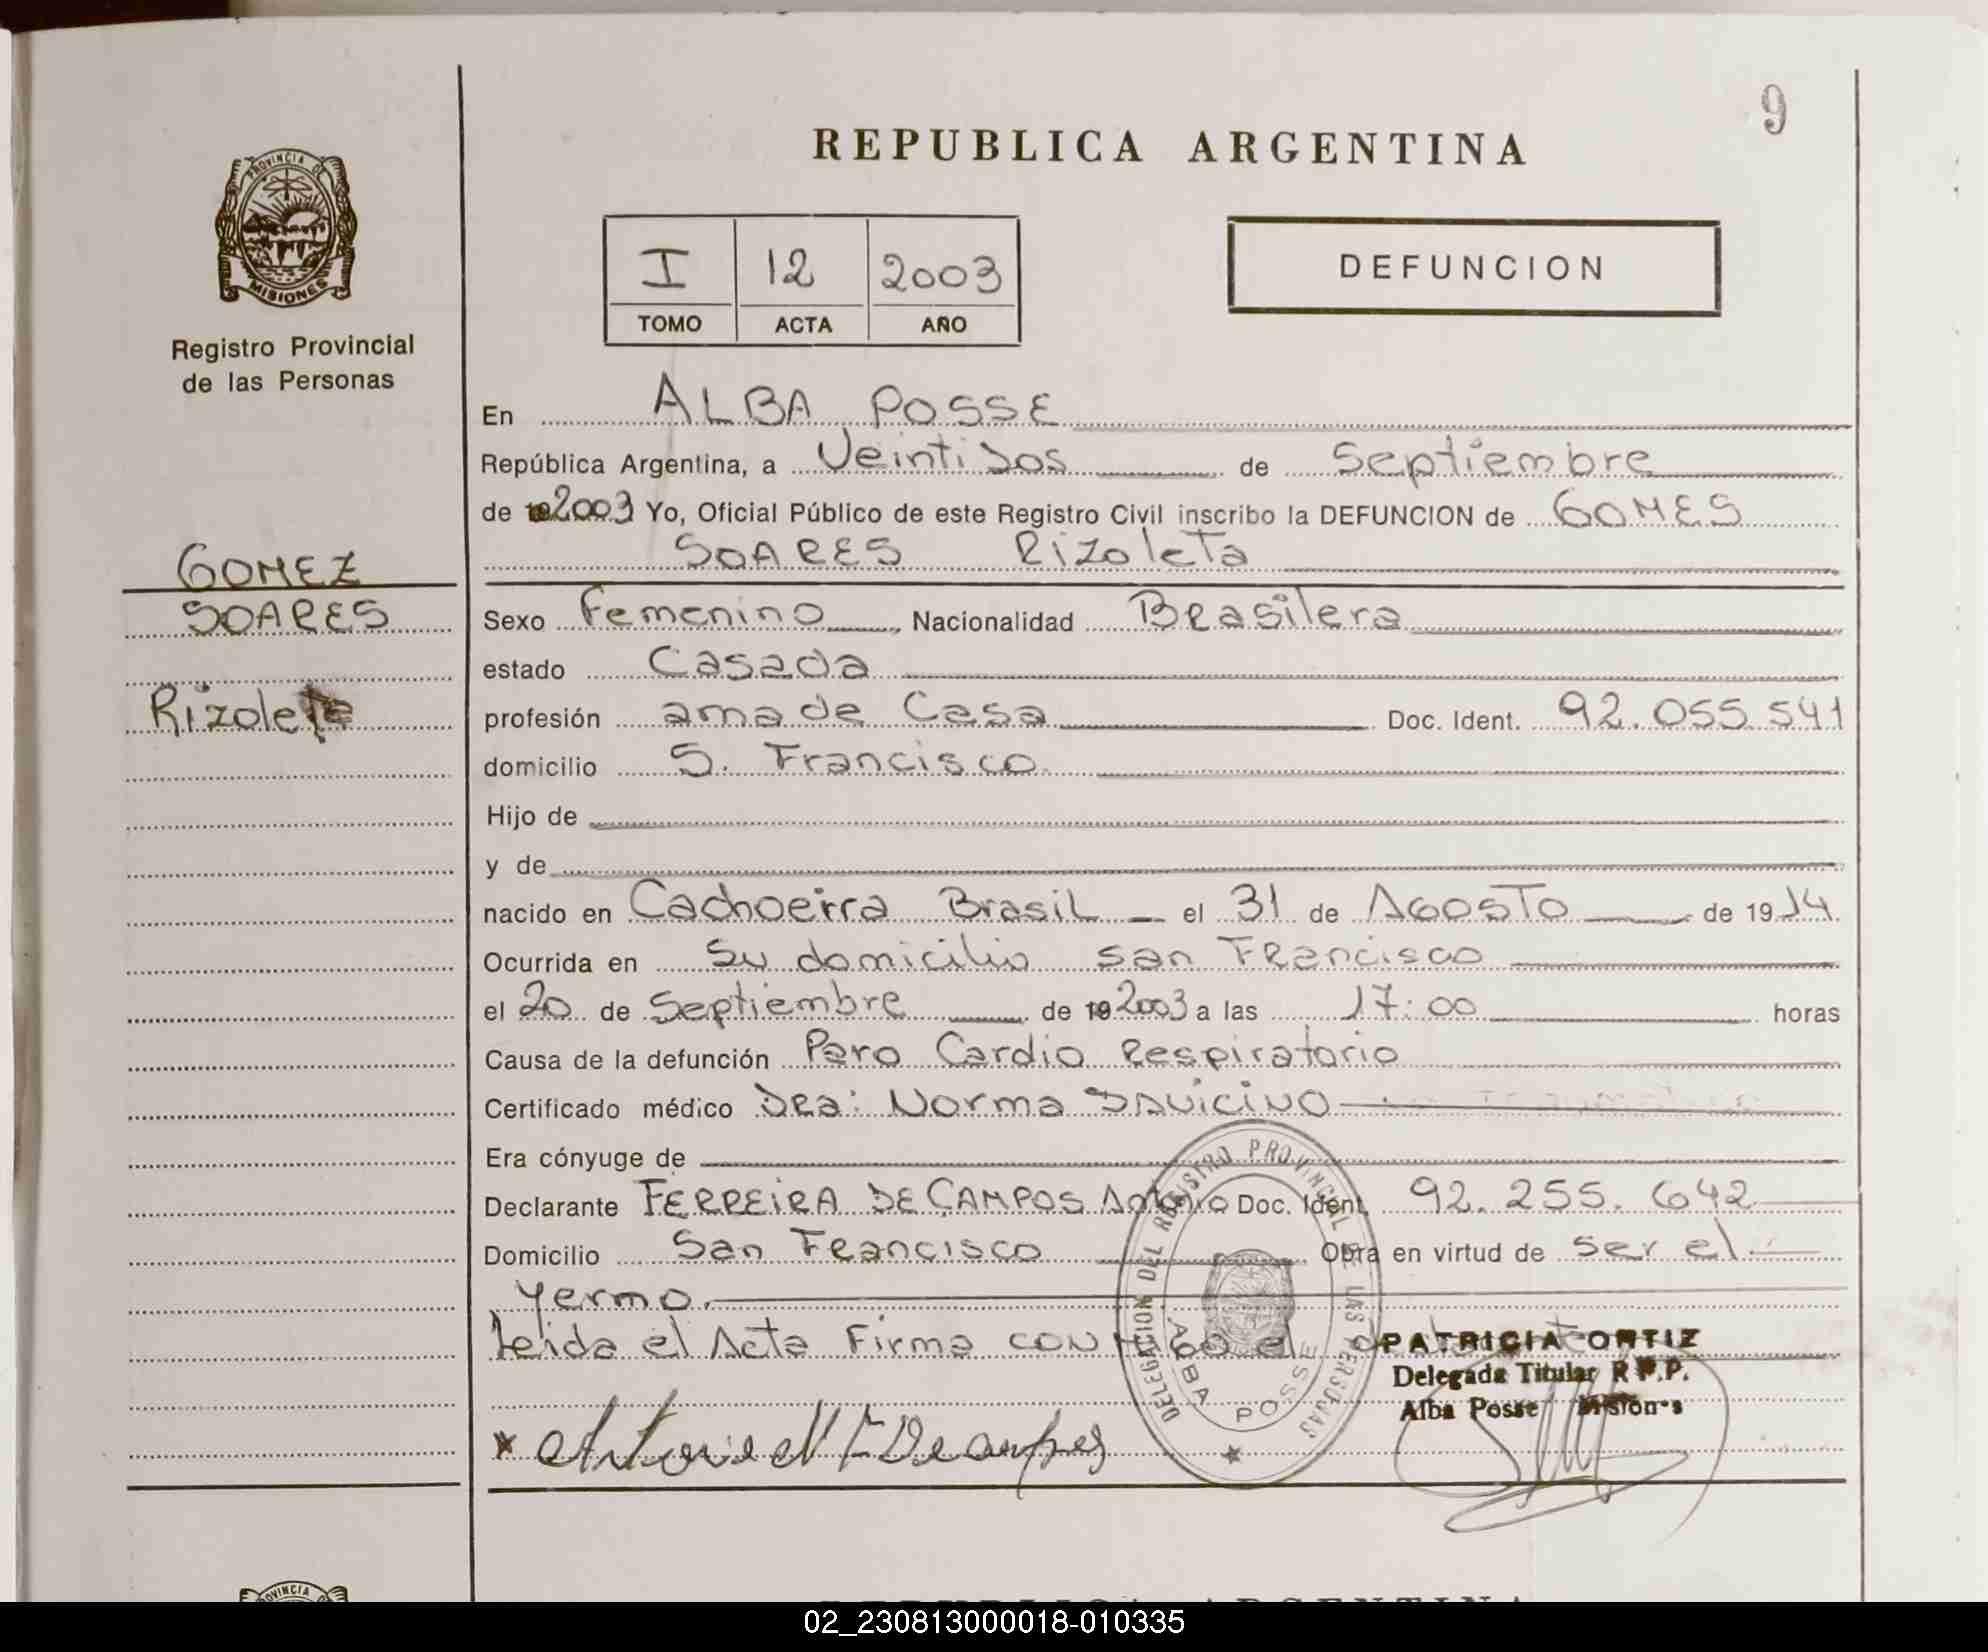 9
REPUBLICA ARGENTINA
PROVINCIA DE
MISIONES
Registro Provincial
de las Personas
I 12 2003
TOMO ACTA AÑO
DEFUNCION
En ALBA POSSE
República Argentina, a Veintidos de Septiembre
de 19 2003 Yo, Oficial Público de este Registro Civil inscribo la DEFUNCION de GOMES
SOARES Rizoleta
GOMEZ
SOARES
Rizoleta
Sexo Femenino, Nacionalidad Brasilera
estado Casada
profesión ama de Casa Doc. Ident. 92.055.541
domicilio S. Francisco
Hijo de
y de
nacido en Cachoeirra Brasil el 31 de Agosto de 1914
Ocurrida en su domicilio san Francisco
el 20 de Septiembre de 19 2003 a las 17:00 horas
Causa de la defunción Paro Cardio Respiratorio
Certificado médico Dra: Norma
Era cónyuge de
Declarante FERREIRA DE CAMPOS Antonio Doc. Ident. 92.255.642
Domicilio San Francisco Obra en virtud de ser el
yerno.
leida el Acta Firma conmigo el
DELEGACION DEL REGISTRO PROVINCIAL DE LAS PERSONAS
ALBA POSSE
PATRICIA ORTIZ
Delegada Titular R.P.P.
Alba Posse Misiones
PROVINCIA
REPUBLICA ARGENTINA
02_230813000018-010335